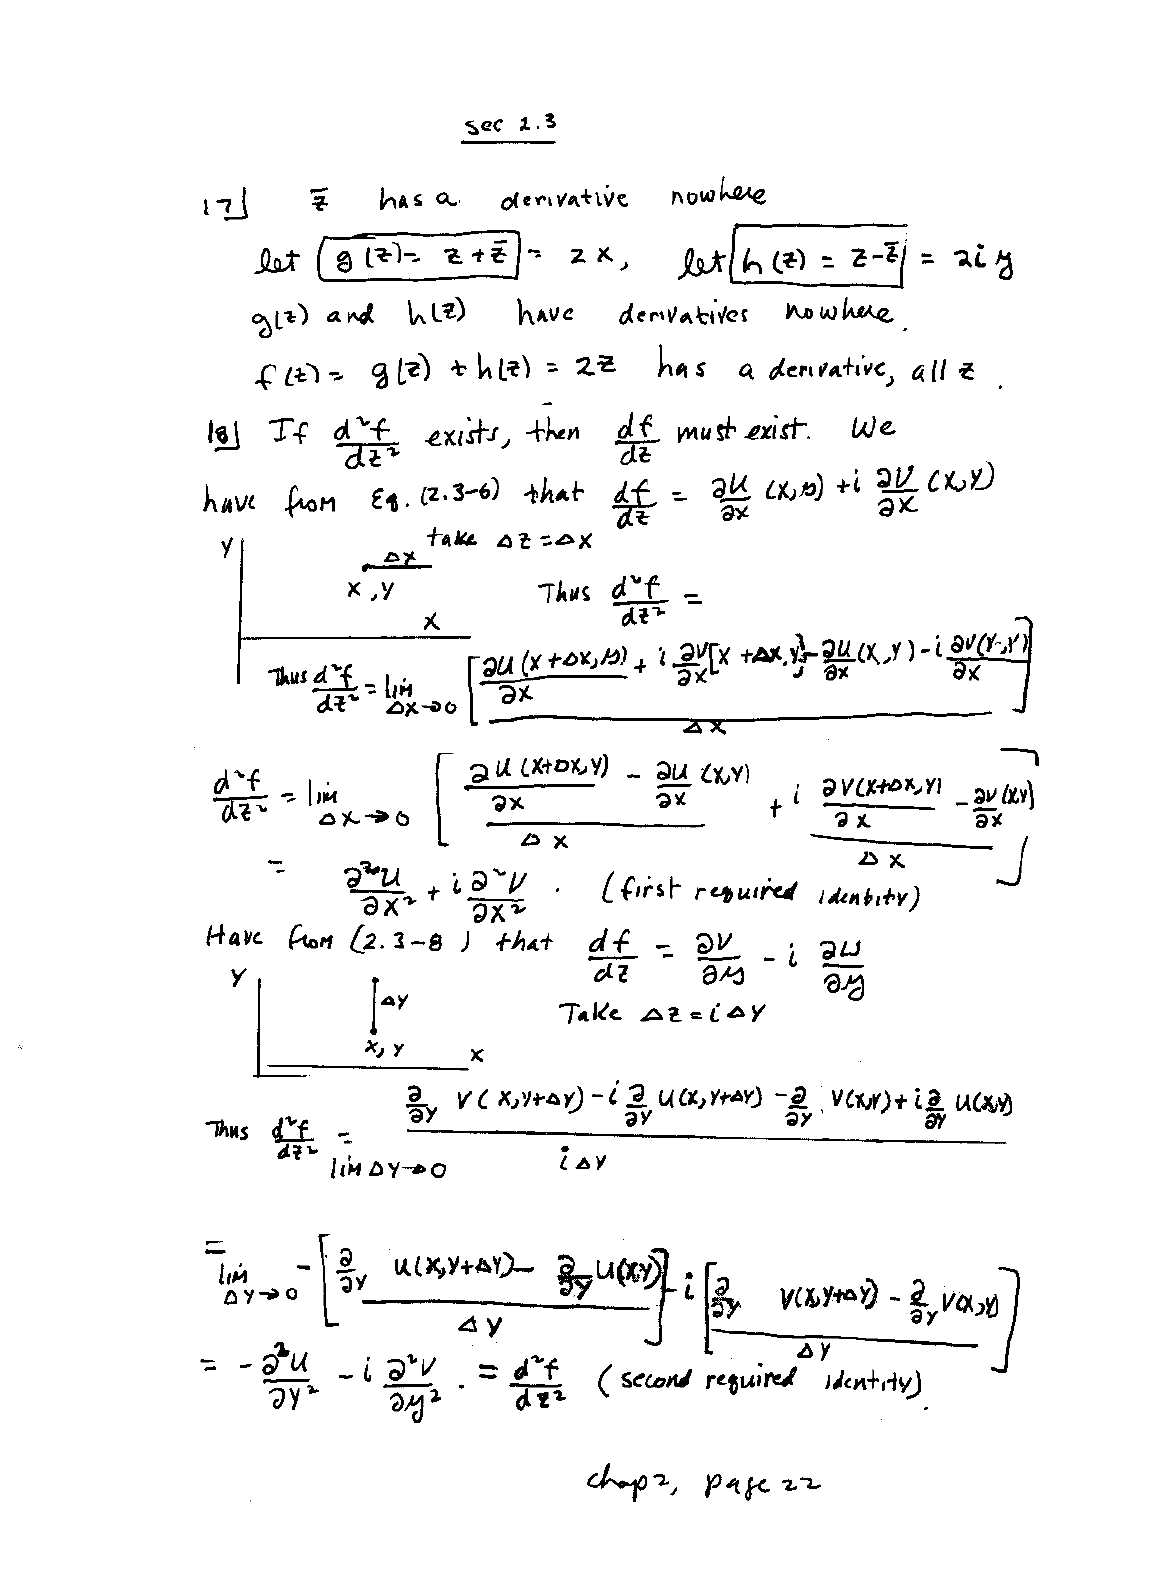 sec 2.3
17] z̄ has a derivative nowhere
let g(z) = z + z̄ = 2x, let h(z) = z - z̄ = 2iy
g(z) and h(z) have derivatives nowhere.
f(z) = g(z) + h(z) = 2z has a derivative, all z.
18] If d²f/dz² exists, then df/dz must exist. We
have from Eq. (2.3-6) that df/dz = ∂u/∂x (x,y) + i ∂v/∂x (x,y)
take Δz = Δx
Y
Δx
x, y
X
Thus d²f/dz² =
Thus d²f/dz² = lim Δx→0 [∂u(x+Δx,y)/∂x + i ∂v/∂x [x+Δx,y] - ∂u/∂x (x,y) - i ∂v(x,y)/∂x] / Δx
d²f/dz² = lim Δx→0 [(∂u(x+Δx,y)/∂x - ∂u/∂x (x,y)) / Δx + i (∂v(x+Δx,y)/∂x - ∂v/∂x (x,y)) / Δx]
= ∂²u/∂x² + i ∂²v/∂x². (first required identity)
Have from (2.3-8) that df/dz = ∂v/∂y - i ∂u/∂y
Y
Δy
x, y
X
Take Δz = iΔy
Thus d²f/dz² = lim Δy→0 (∂/∂y v(x,y+Δy) - i ∂/∂y u(x,y+Δy) - ∂/∂y v(x,y) + i ∂/∂y u(x,y)) / iΔy
= lim Δy→0 - [(∂/∂y u(x,y+Δy) - ∂/∂y u(x,y)) / Δy] - i [(∂/∂y v(x,y+Δy) - ∂/∂y v(x,y)) / Δy]
= - ∂²u/∂y² - i ∂²v/∂y². = d²f/dz² (second required identity).
chap 2, page 22